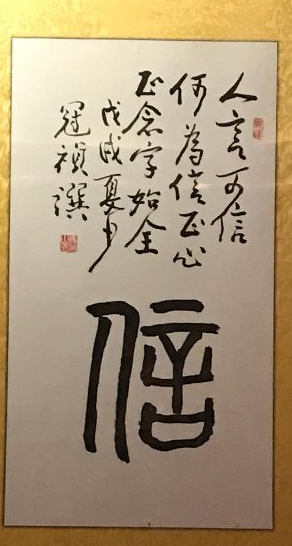 人言可信
何為信正心
正念字始全
戊戌夏月
冠禎撰
信